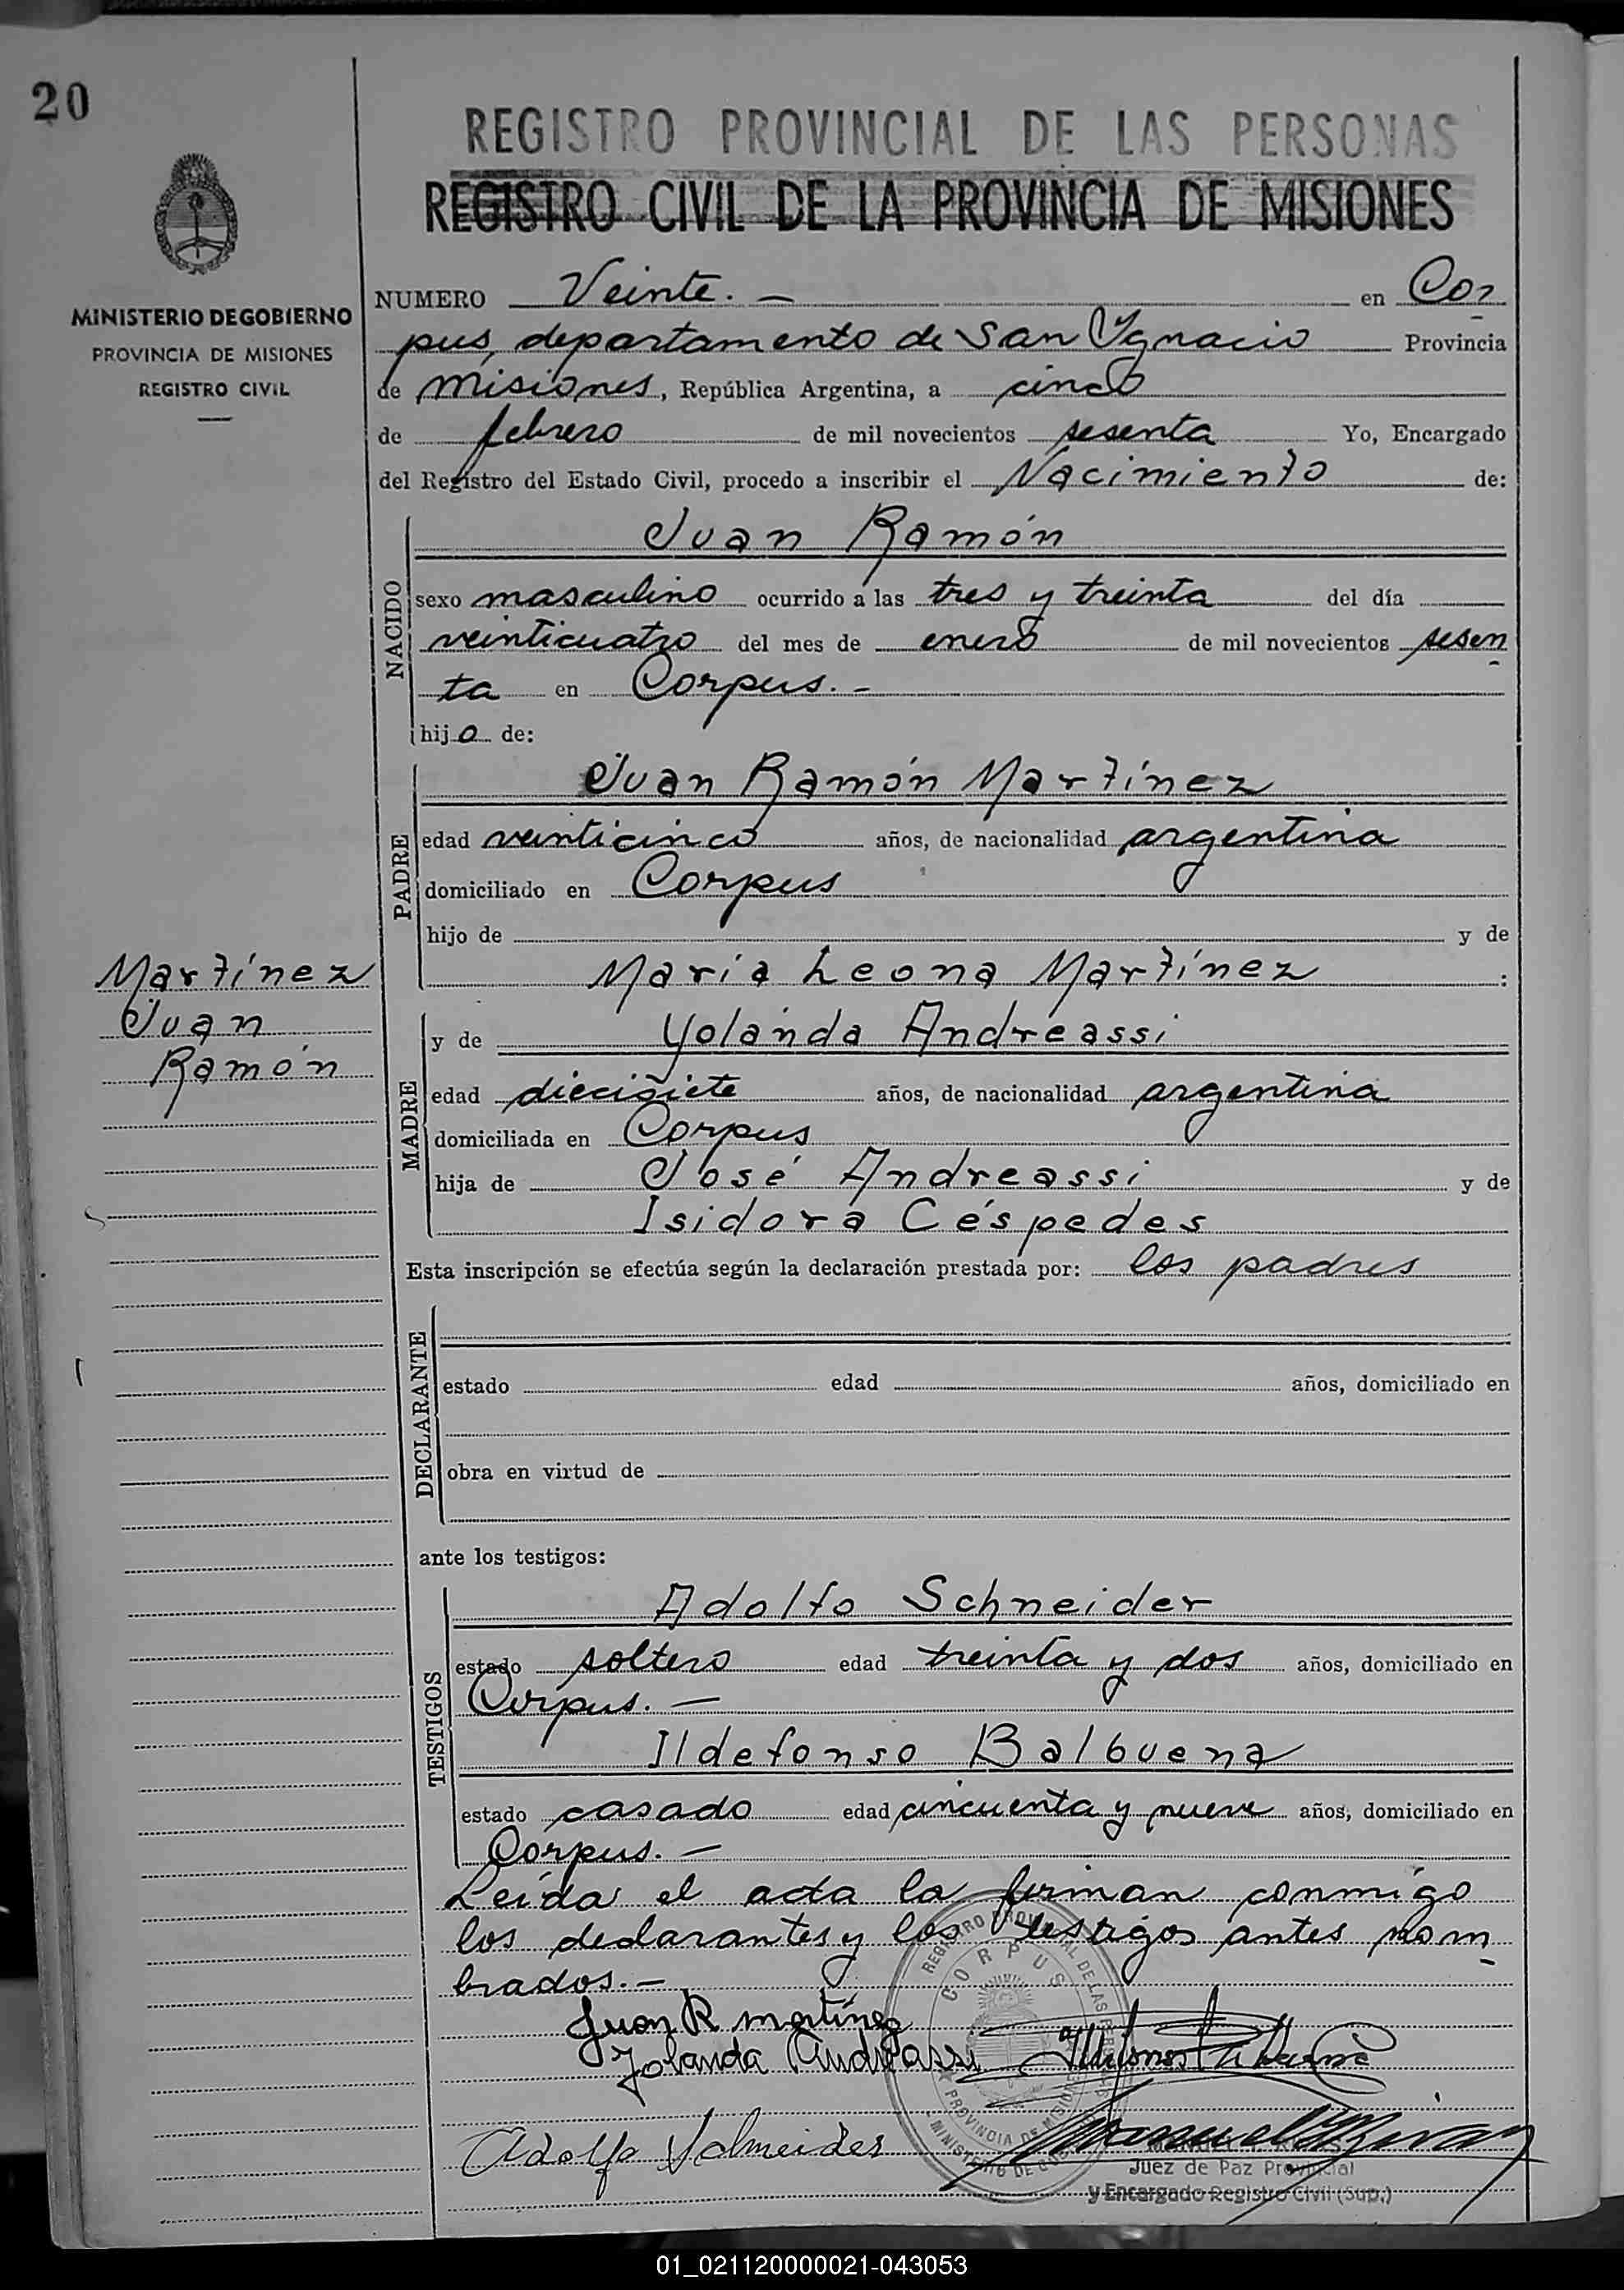 20
REGISTRO PROVINCIAL DE LAS PERSONAS
REGISTRO CIVIL DE LA PROVINCIA DE MISIONES
MINISTERIO DE GOBIERNO
PROVINCIA DE MISIONES
REGISTRO CIVIL
NUMERO Veinte. — en Cor
pus, departamento de San Ygnacio Provincia
de Misiones, República Argentina, a cinco
de febrero de mil novecientos sesenta Yo, Encargado
del Registro del Estado Civil, procedo a inscribir el Nacimiento de:
NACIDO
Juan Ramón
sexo masculino ocurrido a las tres y treinta del día
veinticuatro del mes de enero de mil novecientos sesen
ta en Corpus. -
hijo de:
PADRE
Juan Ramón Martínez
edad veinticinco años, de nacionalidad argentina
domiciliado en Corpus
hijo de y de
María Leona Martínez :
Martínez
Juan
Ramón
MADRE
y de Yolanda Andreassi
edad diecisiete años, de nacionalidad argentina
domiciliada en Corpus
hija de José Andreassi y de
Isidora Céspedes
Esta inscripción se efectúa según la declaración prestada por: los padres
DECLARANTE
estado edad años, domiciliado en
obra en virtud de
ante los testigos:
TESTIGOS
Adolfo Schneider
estado soltero edad treinta y dos años, domiciliado en
Corpus. —
Ildefonso Balbuena
estado casado edad cincuenta y nueve años, domiciliado en
Corpus. —
Leída el acta la firman conmigo
los declarantes y los testigos antes nom
brados. —
Juan R martínez
Yolanda Andreassi
REGISTRO PROVINCIAL DE LAS PERSONAS
CORPUS
PROVINCIA DE MISIONES
MINISTERIO DE
Adolfo Schneider
Juez de Paz Provincial
y Encargado Registro Civil (Sup.)
01_021120000021-043053